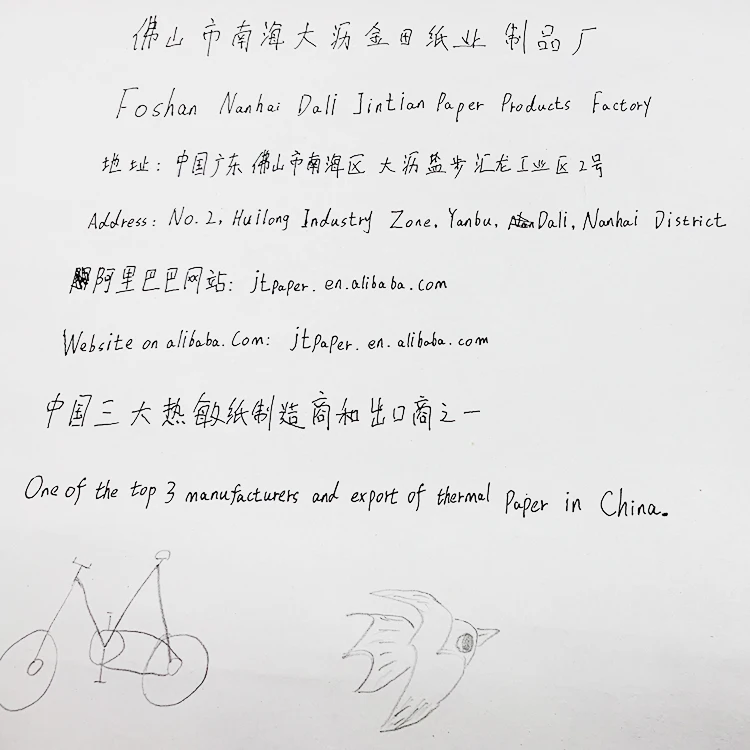 佛山市南海大沥金田纸业制品厂
Foshan Nanhai Dali Jintian Paper Products Factory
地址：中国广东佛山市南海区大沥盐步汇龙工业区2号
Address: No. 2, Huilong Industry Zone, Yanbu, Dali, Nanhai District
阿里巴巴网站：jtpaper.en.alibaba.com
Website on alibaba.Com: jtpaper.en.alibaba.com
中国三大热敏纸制造商和出口商之一
One of the top 3 manufacturers and export of thermal Paper in China.